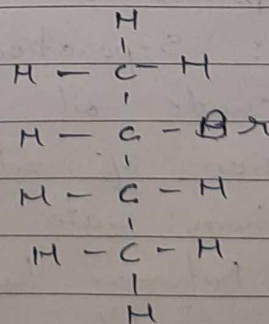 H
H - C - H
H - C - Br
H - C - H
H - C - H
H